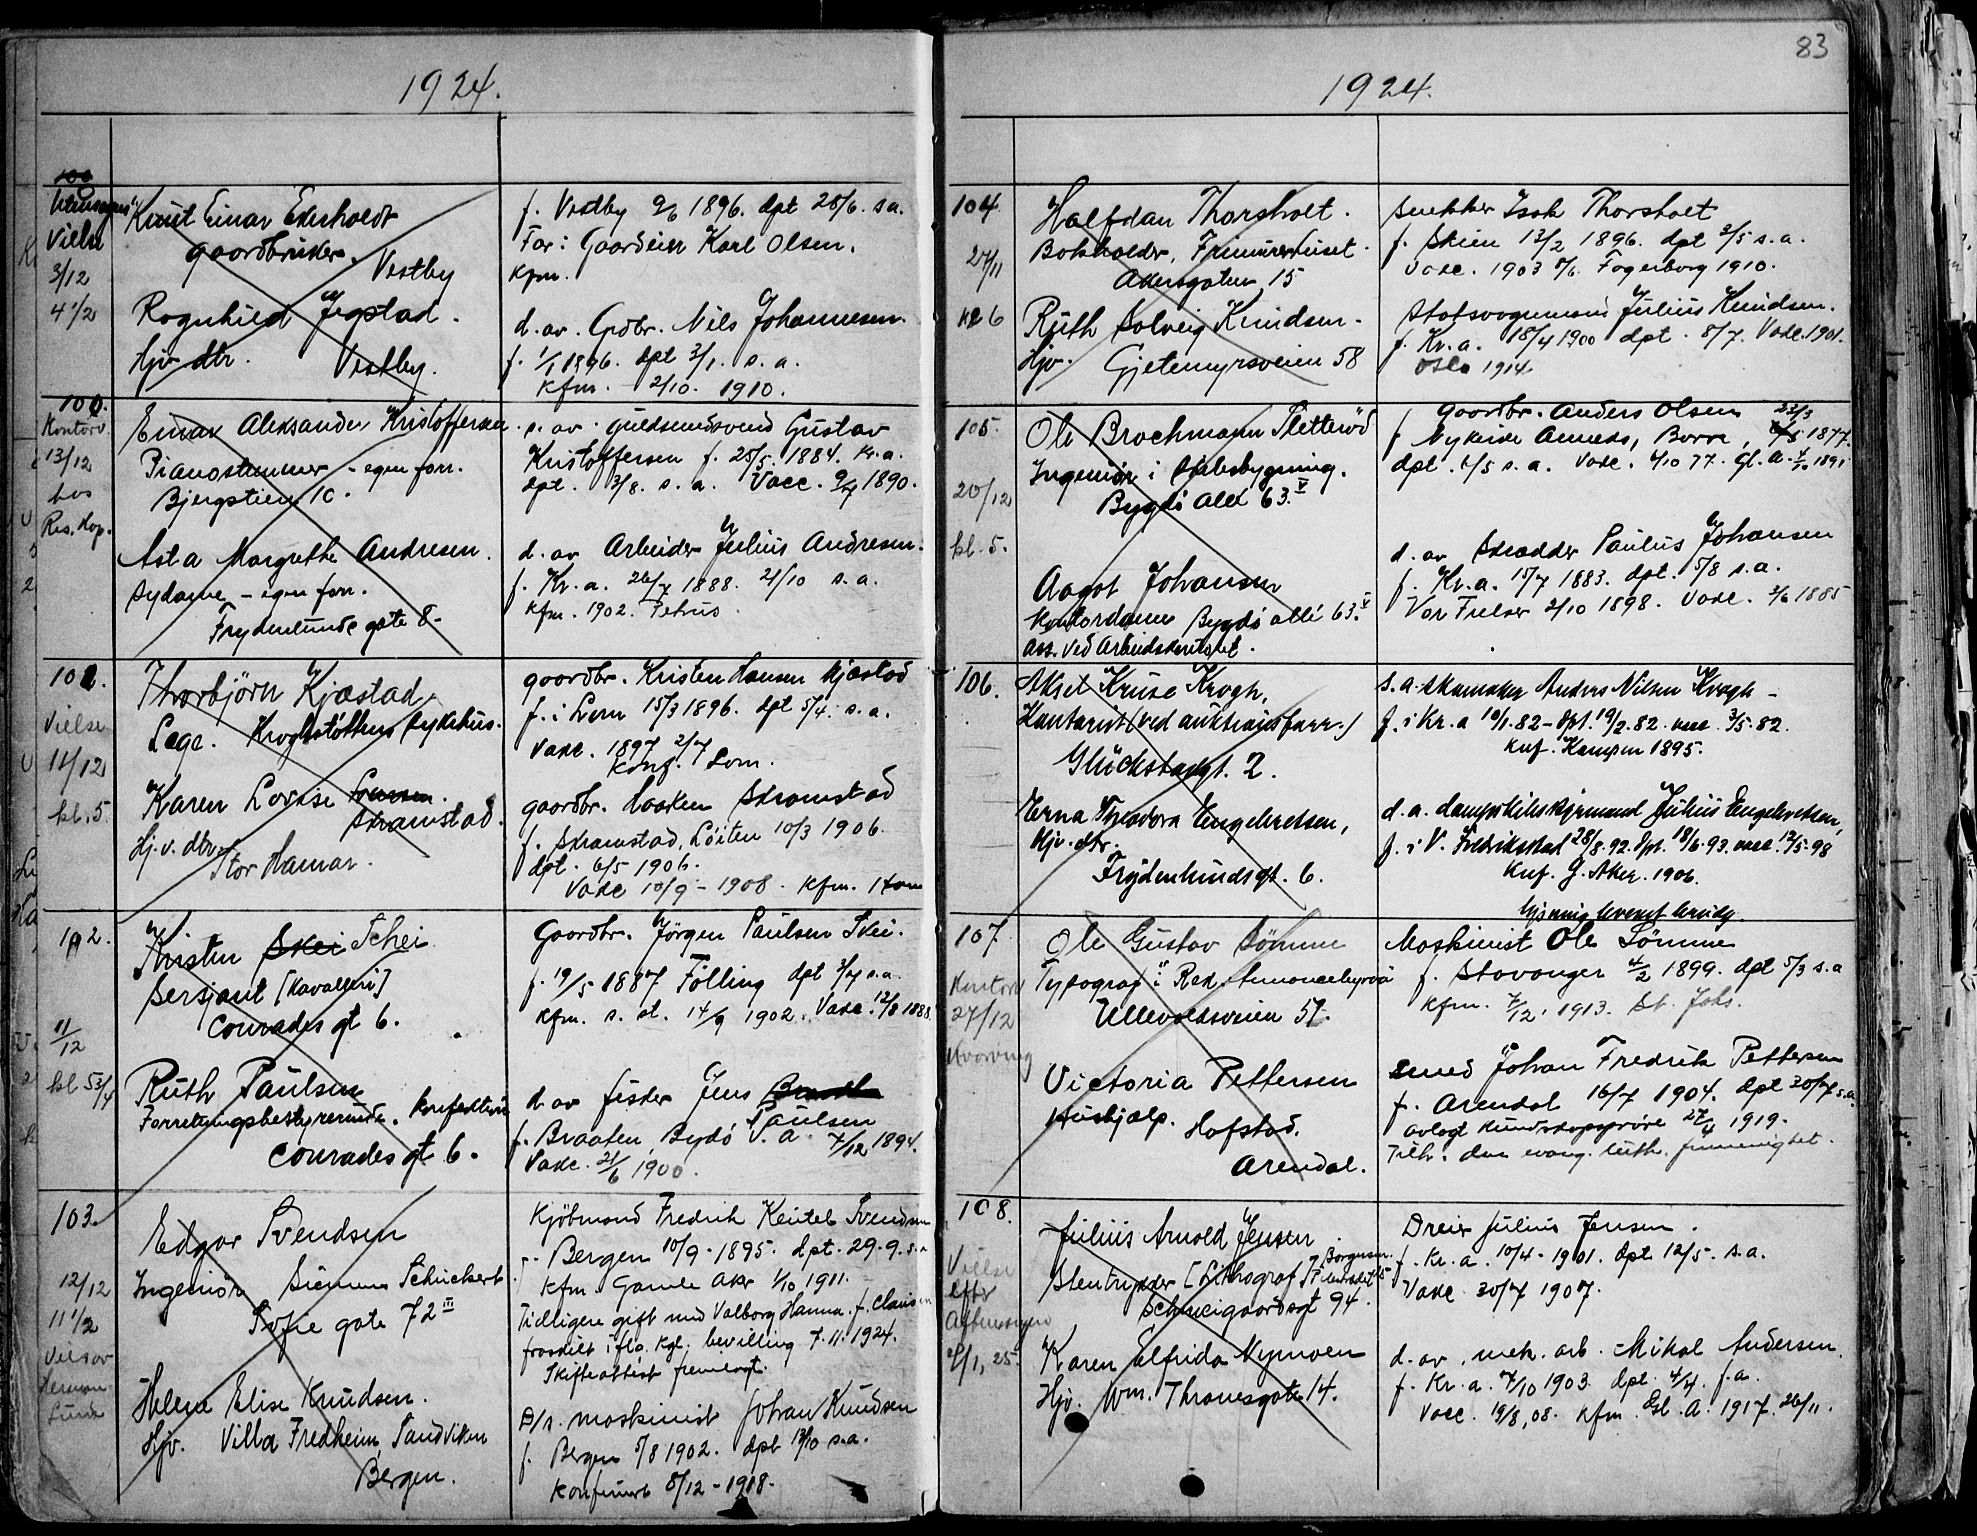 1924.
100
Vielse
3/12
4 1/2
Knut Einar Ekerholdt
gaardbruker.
Vestby
Ragnhild Jegstad.
Hjv. dtr.
Vestby.
f. Vestby 9/6 1896. dpt 28/6. s.a.
Far: Gaardeier Karl Olsen.
Kfm.
d. av. Grdbr. Nils Johannesen.
f. 1/1 1896. dpt 3/1. s.a.
Kfm. - 2/10. 1910.
100.
Kontorv.
13/12
hos
Res. Kap.
Einar Aleksander Kristoffersen
Pianostemmer - egen forr.
Bjergstien 10.
Asta Margrethe Andresen.
Sydame - egen forr.
Frydenlunds gate 8-
s. av. guldsmedsvend Gustav
Kristoffersen f. 25/5. 1884. Kr.a.
dpt. 3/8. s.a. Vacc. 9/7 1890.
d. av Arbeider Julius Andresen.
f. Kr.a. 26/7 1888. 21/10 s.a.
Kfm. 1902. Petrus
101.
Vielse
11/12
kl. 5
Thorbjörn Kjæstad
Læge. Krohgstøttens sykehus.
Karen Lovise Larsen.
Skramstad.
Hj.v. dtr.
Stor Hamar.
gaardbr. Kristen Hansen Kjæstad
f. i Lom 15/3 1896. dpt 5/4. s.a.
Vaxc. 1897 2/7
Konf. Lom.
gaardbr. Haaken Skramstad
f. Skramstad, Löiten 10/3 1906.
dpt. 6/5 1906.
Vaxc 10/9 - 1908. Kfm. Ham
102.
11/12
kl 5 3/4
Kristen Skei Schei
Sersjant [Kavalleri]
Conradis gt 6.
Ruth Paulsen
Forretningsbestyrerinde. Konfektion
Conrades gt 6.
Gaardbr. Jörgen Paulsen Skei.
f. 19/5 1887 Fölling dpt 3/7 s.a.
Kfm. s. st. 14/9 1902. Vaxc. 12/8 1888.
d. av fisker Jens Brandt
Paulsen
f. Braaten Bydö V. A. 7/12 1894.
Vaxc. 21/6 1900.
103.
12/12
11 1/2
Vielse av
Herman
Lunde
Edgar Svendsen
Ingeniör Siemens Schuckert
Sofie gate 72 III
Helene Elise Knudsen.
Hjv. Villa Fredheim Sandviken
Bergen.
Kjöbmand Fredrik Keutel Svendsen
f. Bergen 10/9 - 1895. dpt. 29.9. s.a
Kfm Gamle Aker 1/10 1911.
Tidligere gift med Valborg Hanna f. Clausen
fraskilt iflg. kgl. bevilling 7.11.1924.
Skifteattest fremlagt.
D/s. maskinist Johan Knudsen
f. Bergen 5/8 1902. dpt 13/10 s.a.
Konfirmert 8/12 - 1918.
83
1924.
104
27/11
kl 6
Halfdan Thorsholt.
Bokholder, Frimurerhuset.
Akersgaten 15
Ruth Solveig Knudsen.
Hjv. Gjetemyrsveien 58
Snekker Isak Thorsholt
f. Skien 13/2 1896. dpt 3/5 s.a.
Vaxc. 1903 Fagerborg 1910.
Statsvognmand Julius Knudsen.
f. Kr.a. 18/4 1900 dpt. 8/7. Vaxc. 1901.
Oslo 1914.
105.
20/12
kl. 5.
Ole Brochmann Sletteröd
Ingeniör i Skibsbygning.
Bygdö allé 63 V
Aagot Johansen
Kontordame Bygdö allé 63 V
Ass. ved Arbeidskontoret.
Gaardbr. Anders Olsen 23/3
f. Nykirke Anneds, Borre, 1877.
dpt. 6/5 s.a. Vaxc. 4/10 77. Gl. A. 1891
d. av Skrædder Paulus Johansen
f. Kr.a. 15/7 1883. dpt. 5/8 s.a.
Vor Frelser 2/10 1898. Vaxc. 2/6 1885
106.
Aksel Kruse Krogh,
Kontorist (ved auktionsforr.)
Glückstadgt. 2.
Erna Theodora Engebretsen,
Hjv. dtr.
Frydenlundsgt. 6.
s. a. skomaker Anders Nilsen Krogh -
f. i Kr.a 10/1.82 - dpt. 19/2.82. vacc 3/5.82.
Knf. Kampen 1895.
d. a. dampskibsstyrmand Julius Engebretsen,
f. i V. Fredrikstad 28/8.92. dpt. 18/6.93. vacc. 12/5.98
Knf. G. Aker. 1906.
107.
Kontorv
27/12
Ole Gustav Sömme
Typograf i Red. Annoncebyraa
Ullevoldsveien 57.
Victoria Pettersen
Hushjælp. Hofstad.
Arendal.
Maskinist Ole Sömme
f. Stavanger 4/2 1899. dpt 5/3 s.a
Kfm. 7/12. 1913. St. Johs.
Smed Johan Fredrik Pettersen
f. Arendal 16/7 1904. dpt 30/7 s.a.
avlagt kundskapspröve 27/4 1919.
Tilh. den evang. luth. frimenighet.
108.
Vielse
efter
Aftensang
1, 25
Julius Arnold Jensen
Stentrykker [Lithograf]
Schweigaardsgt 94.
Karen Elfrida Nymoen
Hjv. Wm. Thranesgate 14.
Dreier Julius Jensen.
f. Kr.a. 10/4 - 1901. dpt 12/5. s.a.
Vaxc. 30/7 1907.
d. av. mek. arb. Mikal Andersen.
f. Kr.a. 7/10 1903. dpt. 4/4. f.a.
Vacc. 19/8, 08. Kfm. Gl. A. 1917. 26/11.